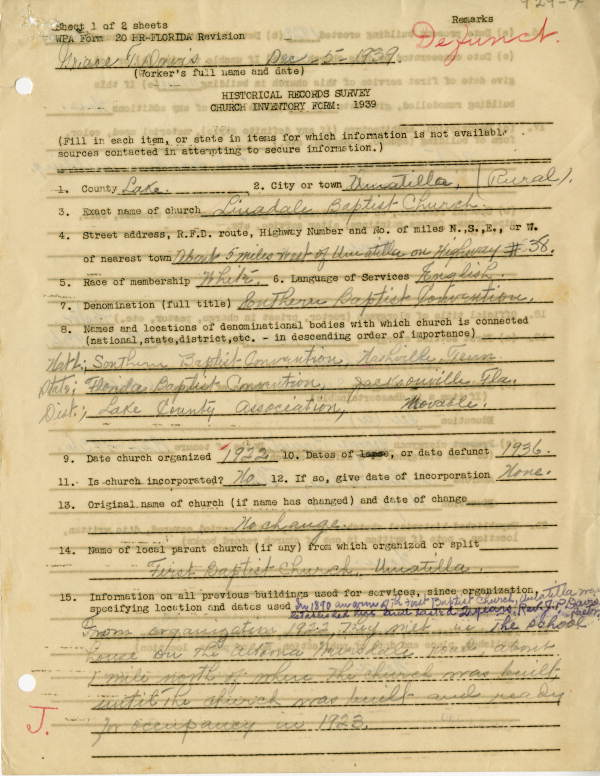 929-7
Sheet 1 of 2 sheets
Remarks
WPA Form 20 HR-FLORIDA Revision
Defunct.
Dec -5- 1939.
(Worker's full name and date)
HISTORICAL RECORDS SURVEY
CHURCH INVENTORY FORM: 1939
(Fill in each item, or state in items for which information is not available
sources contacted in attempting to secure information.)
1. County Lake. 2. City or town Umatilla, (Rural).
3. Exact name of church Linadale Baptist Church.
4. Street address, R.F.D. route, Highway Number and No. of miles N.,S.,E., or W.
of nearest town About 5 miles west of Umatilla on Highway #38.
5. Race of membership White. 6. Language of Services English.
7. Denomination (full title) Southern Baptist Convention.
8. Names and locations of denominational bodies with which church is connected
(national,state,district,etc. - in descending order of importance)
Natl; Southern Baptist Convention, Nashville Tenn
State; Florida Baptist Convention, Jacksonville Fla.
Dist; Lake County Association, Movable.
9. Date church organized 1922 10. Dates of lapse, or date defunct 1936.
11. Is church incorporated? No. 12. If so, give date of incorporation None.
13. Original name of church (if name has changed) and date of change
No change.
14. Name of local parent church (if any) from which organized or split
First Baptist Church, Umatilla.
15. Information on all previous buildings used for services, since organization,
specifying location and dates used In 1890 an arm of the First Baptist Church, Umatilla was
established here and lasted years, Rev. J. P. Davis
From organization 1922 they met in the school
house on the Altoona road about
1 mile north of where the church was built
until the church was built and ready
for occupancy in 1923.
J.